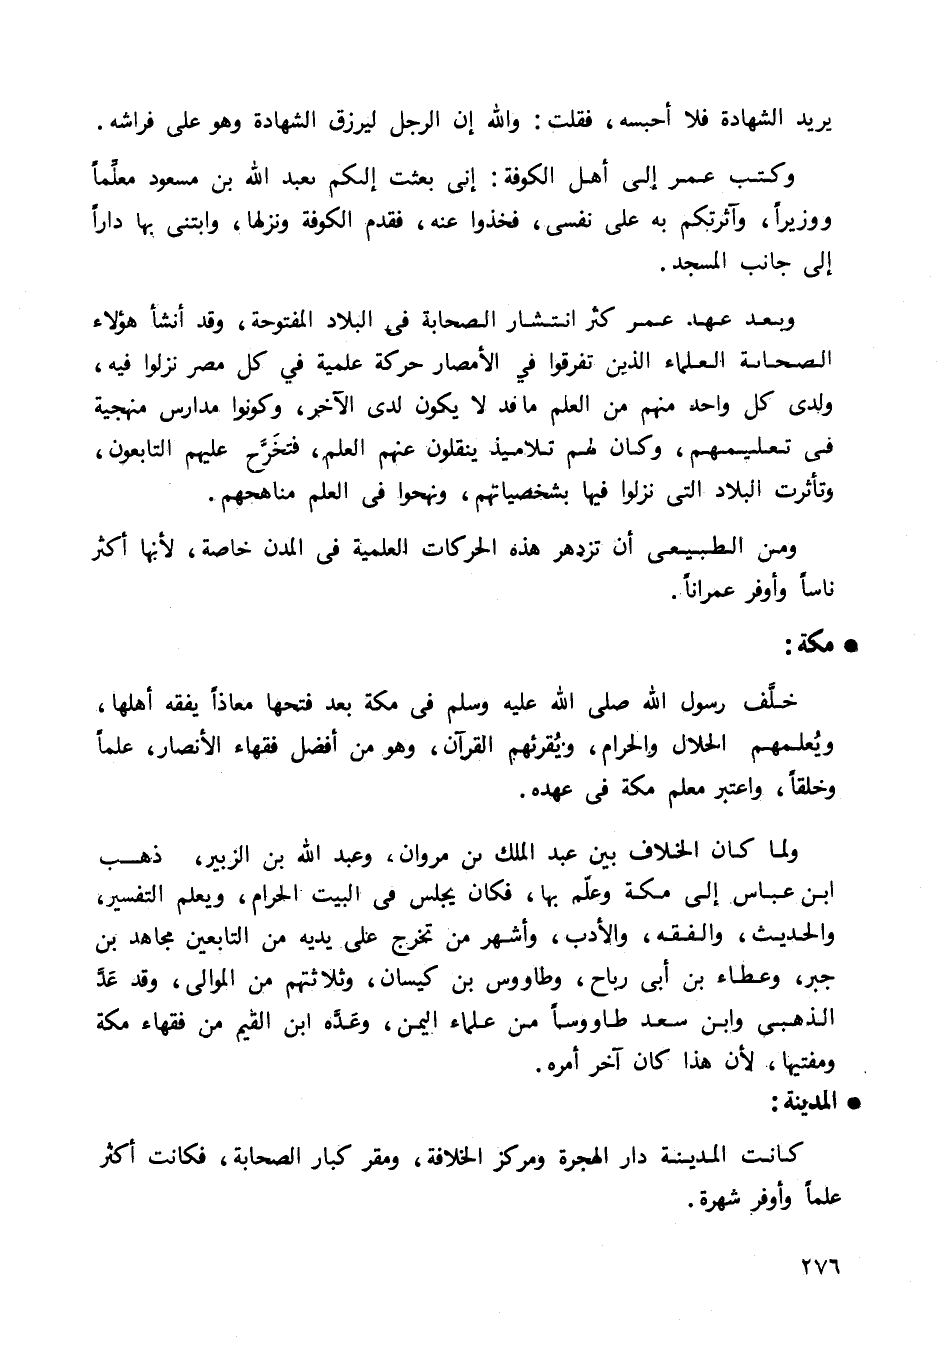 يريد الشهادة فلا أحبسه ، فقلت : والله إن الرجل ليرزق الشهادة وهو على فراشه .
وكتب عمر إلى أهل الكوفة : إنى بعثت إليكم بعبد الله بن مسعود معلِّماً
ووزيراً ، وآثرتكم به على نفسى ، فخذوا عنه ، فقدم الكوفة ونزلها ، وابتنى بها داراً
إلى جانب المسجد .
وبعد عهد عمر كثر انتشار الصحابة فى البلاد المفتوحة ، وقد أنشأ هؤلاء
الصحابة العلماء الذين تفرقوا في الأمصار حركة علمية في كل مصر نزلوا فيه ،
ولدى كل واحد منهم من العلم ما قد لا يكون لدى الآخر ، وكونوا مدارس منهجية
فى تعليمهم ، وكان لهم تلاميذ ينقلون عنهم العلم ، فتخَرَّج عليهم التابعون ،
وتأثرت البلاد التى نزلوا فيها بشخصياتهم ، ونهجوا فى العلم مناهجهم .
ومن الطبيعى أن تزدهر هذه الحركات العلمية فى المدن خاصة ، لأنها أكثر
ناساً وأوفر عمراناً .
● مكة :
خلَّف رسول الله صلى الله عليه وسلم فى مكة بعد فتحها معاذاً يفقه أهلها ،
ويُعلمهم الحلال والحرام ، ويُقرئهم القرآن ، وهو من أفضل فقهاء الأنصار ، علماً
وخلقاً ، واعتبر معلم مكة فى عهده .
ولما كان الخلاف بين عبد الملك بن مروان ، وعبد الله بن الزبير ، ذهب
ابن عباس إلى مكة وعلّم بها ، فكان يجلس فى البيت الحرام ، ويعلم التفسير ،
والحديث ، والفقه ، والأدب ، وأشهر من تخرج على يديه من التابعين مجاهد بن
جبر ، وعطاء بن أبى رباح ، وطاووس بن كيسان ، وثلاثتهم من الموالى ، وقد عَدَّ
الذهبي وابن سعد طاووساً من علماء اليمن ، وعَدَّه ابن القيم من فقهاء مكة
ومفتيها ، لأن هذا كان آخر أمره .
● المدينة :
كانت المدينة دار الهجرة ومركز الخلافة ، ومقر كبار الصحابة ، فكانت أكثر
علماً وأوفر شهرة .
٢٧٦